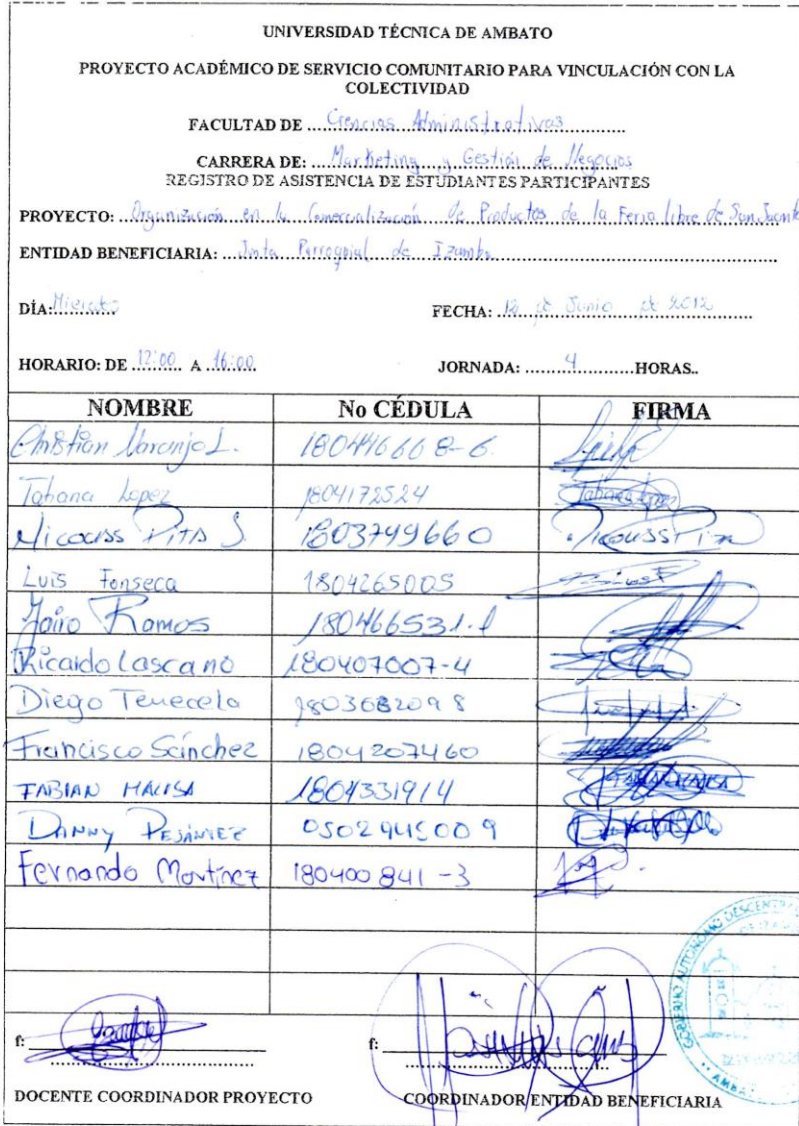 UNIVERSIDAD TÉCNICA DE AMBATO
PROYECTO ACADÉMICO DE SERVICIO COMUNITARIO PARA VINCULACIÓN CON LA
COLECTIVIDAD
FACULTAD DE Ciencias Administrativas
CARRERA DE: Marketing y Gestión de Negocios
REGISTRO DE ASISTENCIA DE ESTUDIANTES PARTICIPANTES
PROYECTO: Organización en la Comercialización de Productos de la Feria libre de San
ENTIDAD BENEFICIARIA: Junta Parroquial de Izamba
DÍA: FECHA: 12 de Junio de 2012
HORARIO: DE 12:00 A 16:00 JORNADA: 4 HORAS..
NOMBRE No CÉDULA FIRMA
Christian Naranjo L. 180446668-6
Tatiana Lopez 1804172524 Tatiana Lopez
Pita S. 1803749660
Luis Fonseca 1804265005
Jairo Ramos 180466531-1
Ricardo Lascano 180407007-4
Diego Tenecela 1803682098
Francisco Sánchez 1804207460
FABIAN 1804331914 FABIAN
DANNY 0502945009
Fernando Martínez 180400841-3
GOBIERNO AUTONOMO DESCENTRA
f: f:
DOCENTE COORDINADOR PROYECTO COORDINADOR ENTIDAD BENEFICIARIA